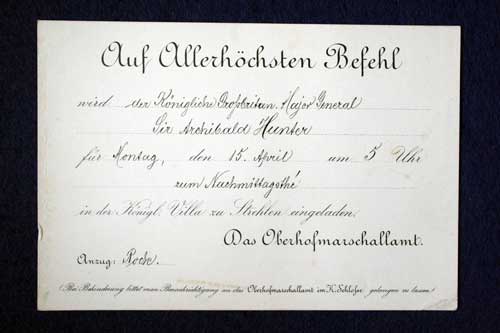 Auf Allerhöchsten Befehl
wird der Königliche Großbritan. Major General
Sir Archibald Hunter
für Montag, den 15. April um 5 Uhr
zum Nachmittagsthé
in der Königl. Villa zu Strehlen eingeladen.
Das Oberhofmarschallamt.
Anzug: Rock.
(Bei Behinderung bittet man Benachrichtigung an das Oberhofmarschallamt im K. Schlosse gelangen zu lassen.)